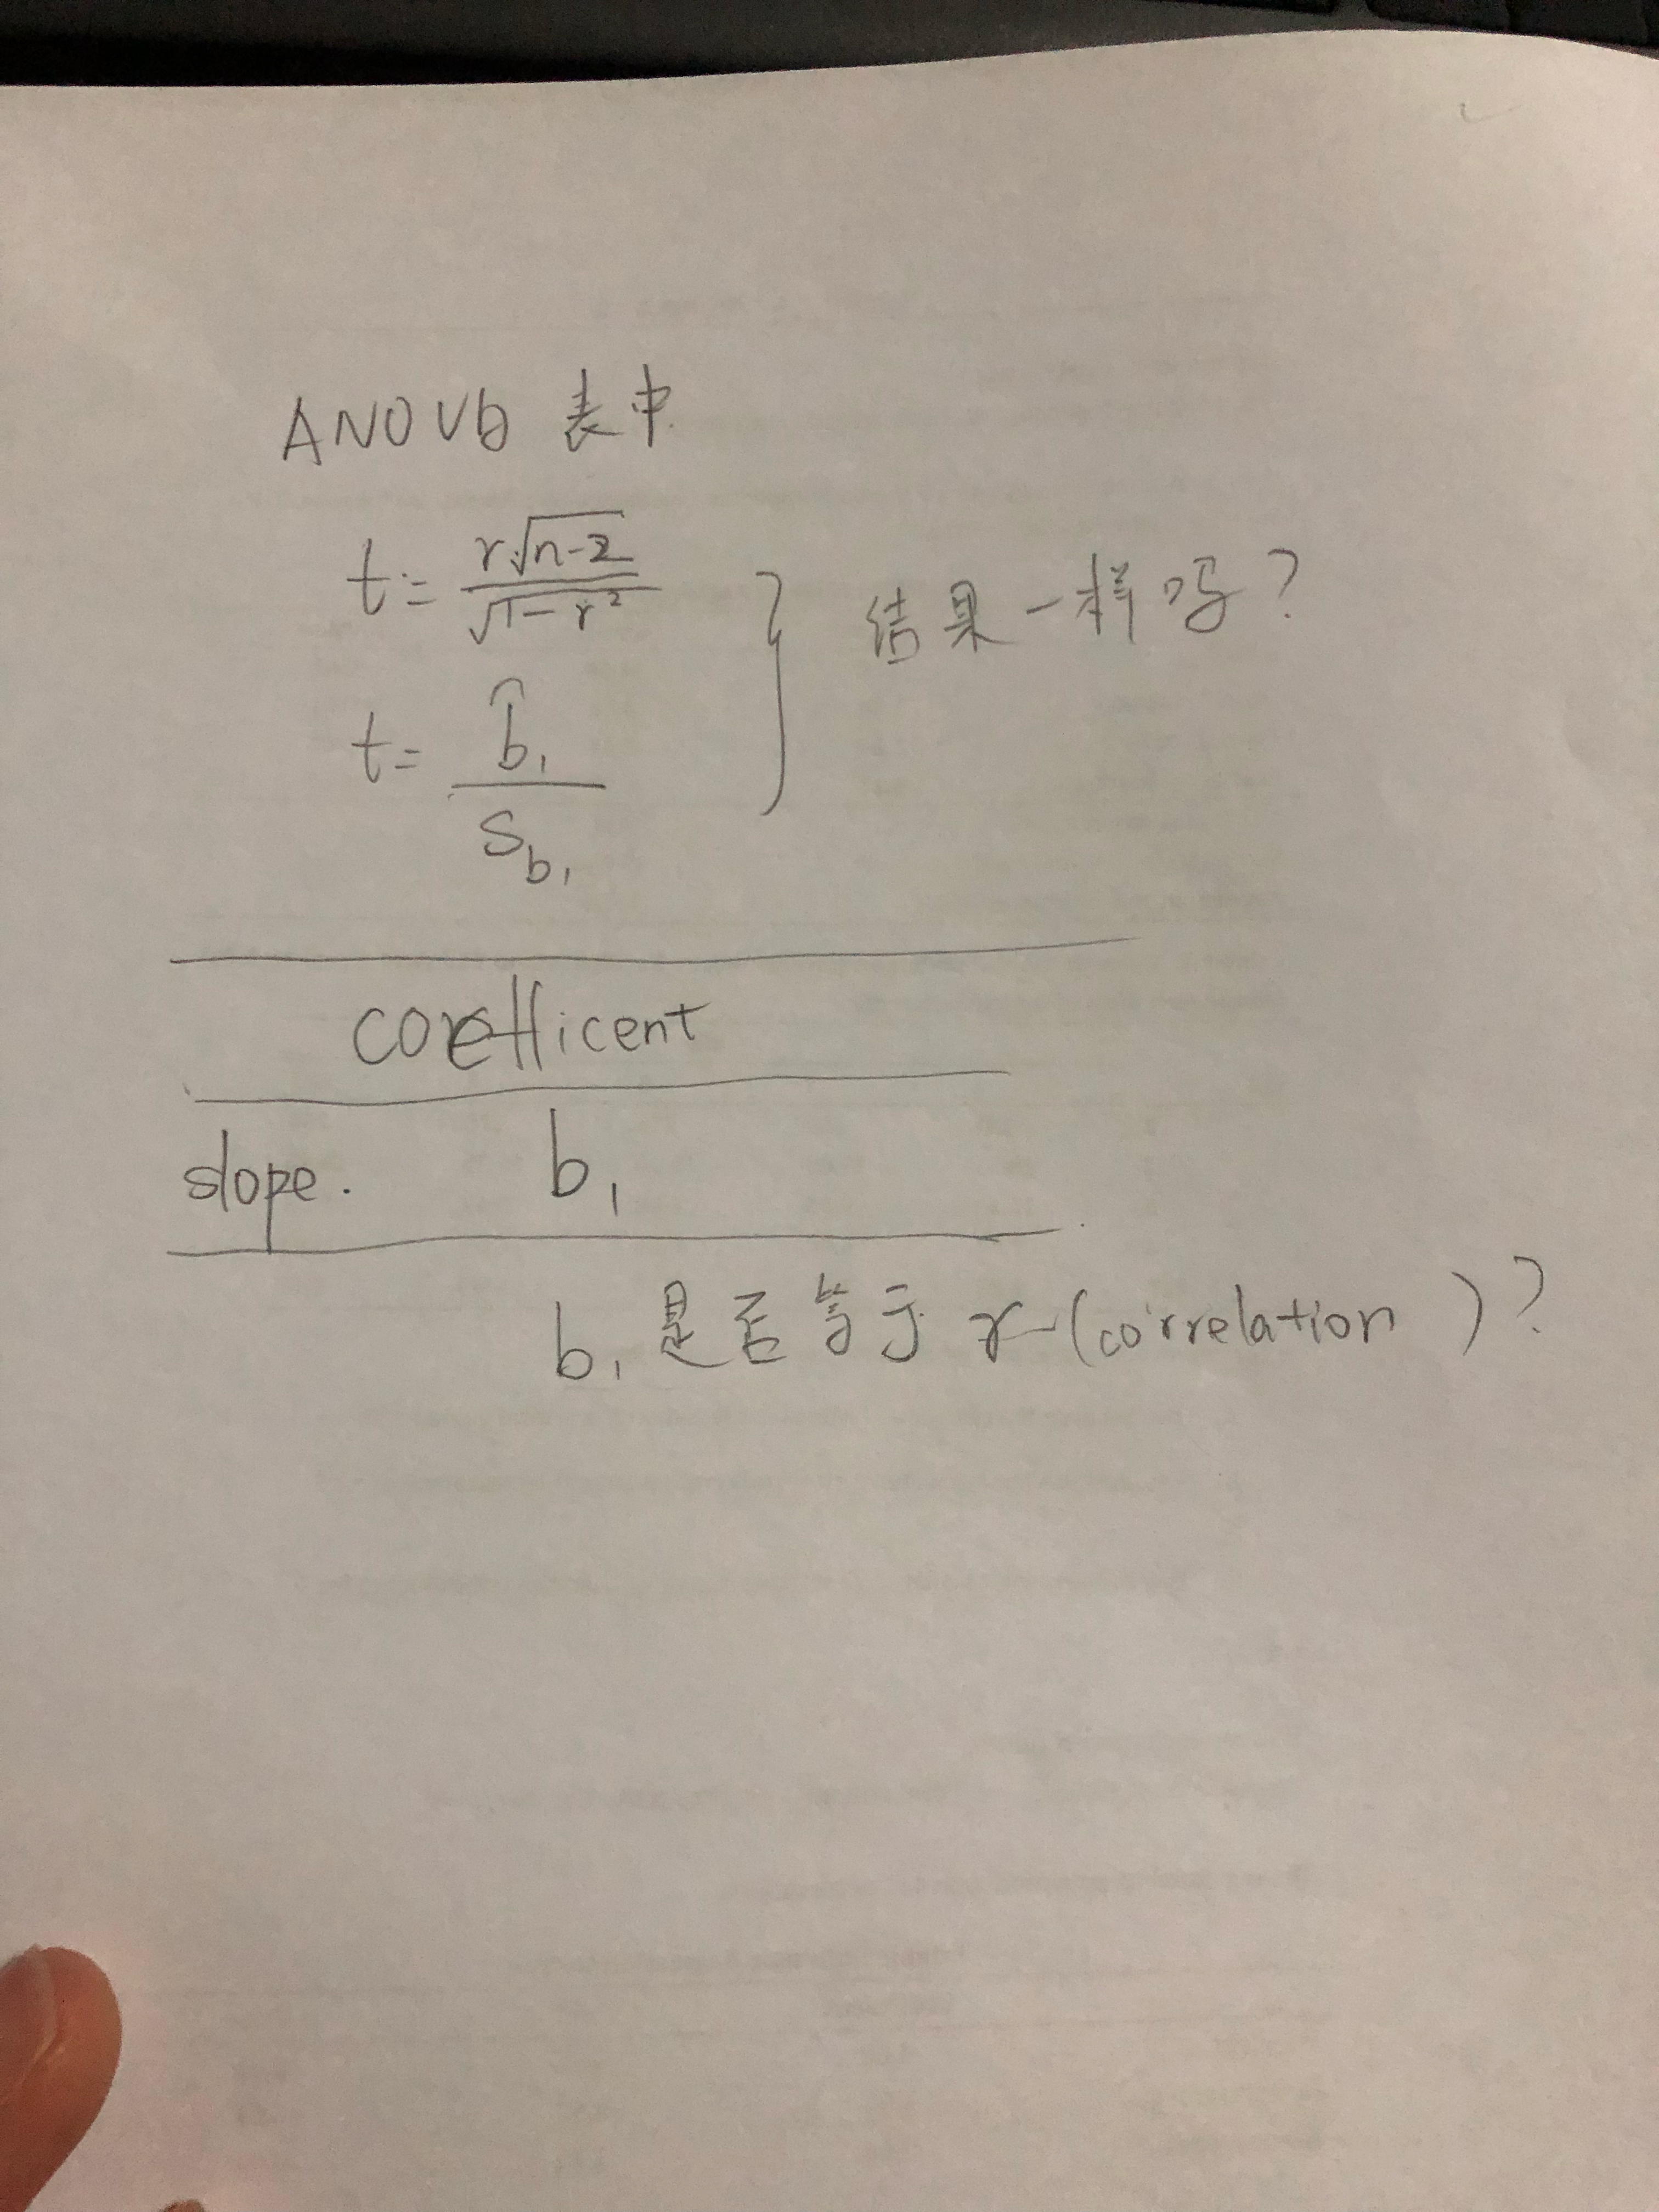 ANOVb 表中
t = r√n-2 / √1-r²
结果一样吗?
t = b̂₁ / S_b₁
coefficent
slope. b₁
b₁ 是否等于 r (correlation)?